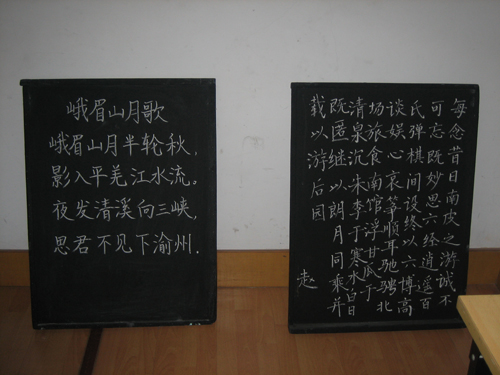 峨眉山月歌
峨眉山月半轮秋,
影入平羌江水流。
夜发清溪向三峡,
思君不见下渝州.
每念昔日南皮之游诚不
可忘既妙思六经逍遥百
氏弹棋间设终以六博高
谈娱心哀筝顺耳驰骋北
场旅食南馆浮甘瓜于
清泉沉朱李于寒水白日
既匿继以朗月同乘并
载以游后园
赵